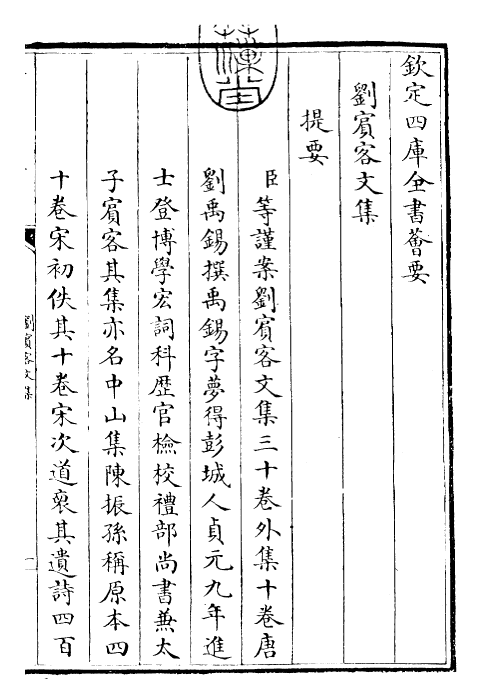 欽定四庫全書薈要
劉賓客文集
提要
臣等謹案劉賓客文集三十卷外集十卷唐
劉禹錫撰禹錫字夢得彭城人貞元九年進
士登博學宏詞科歴官檢校禮部尚書兼太
子賓客其集亦名中山集陳振孫稱原本四
十卷宋初佚其十卷宋次道裒其遺詩四百
劉賓客文集
一